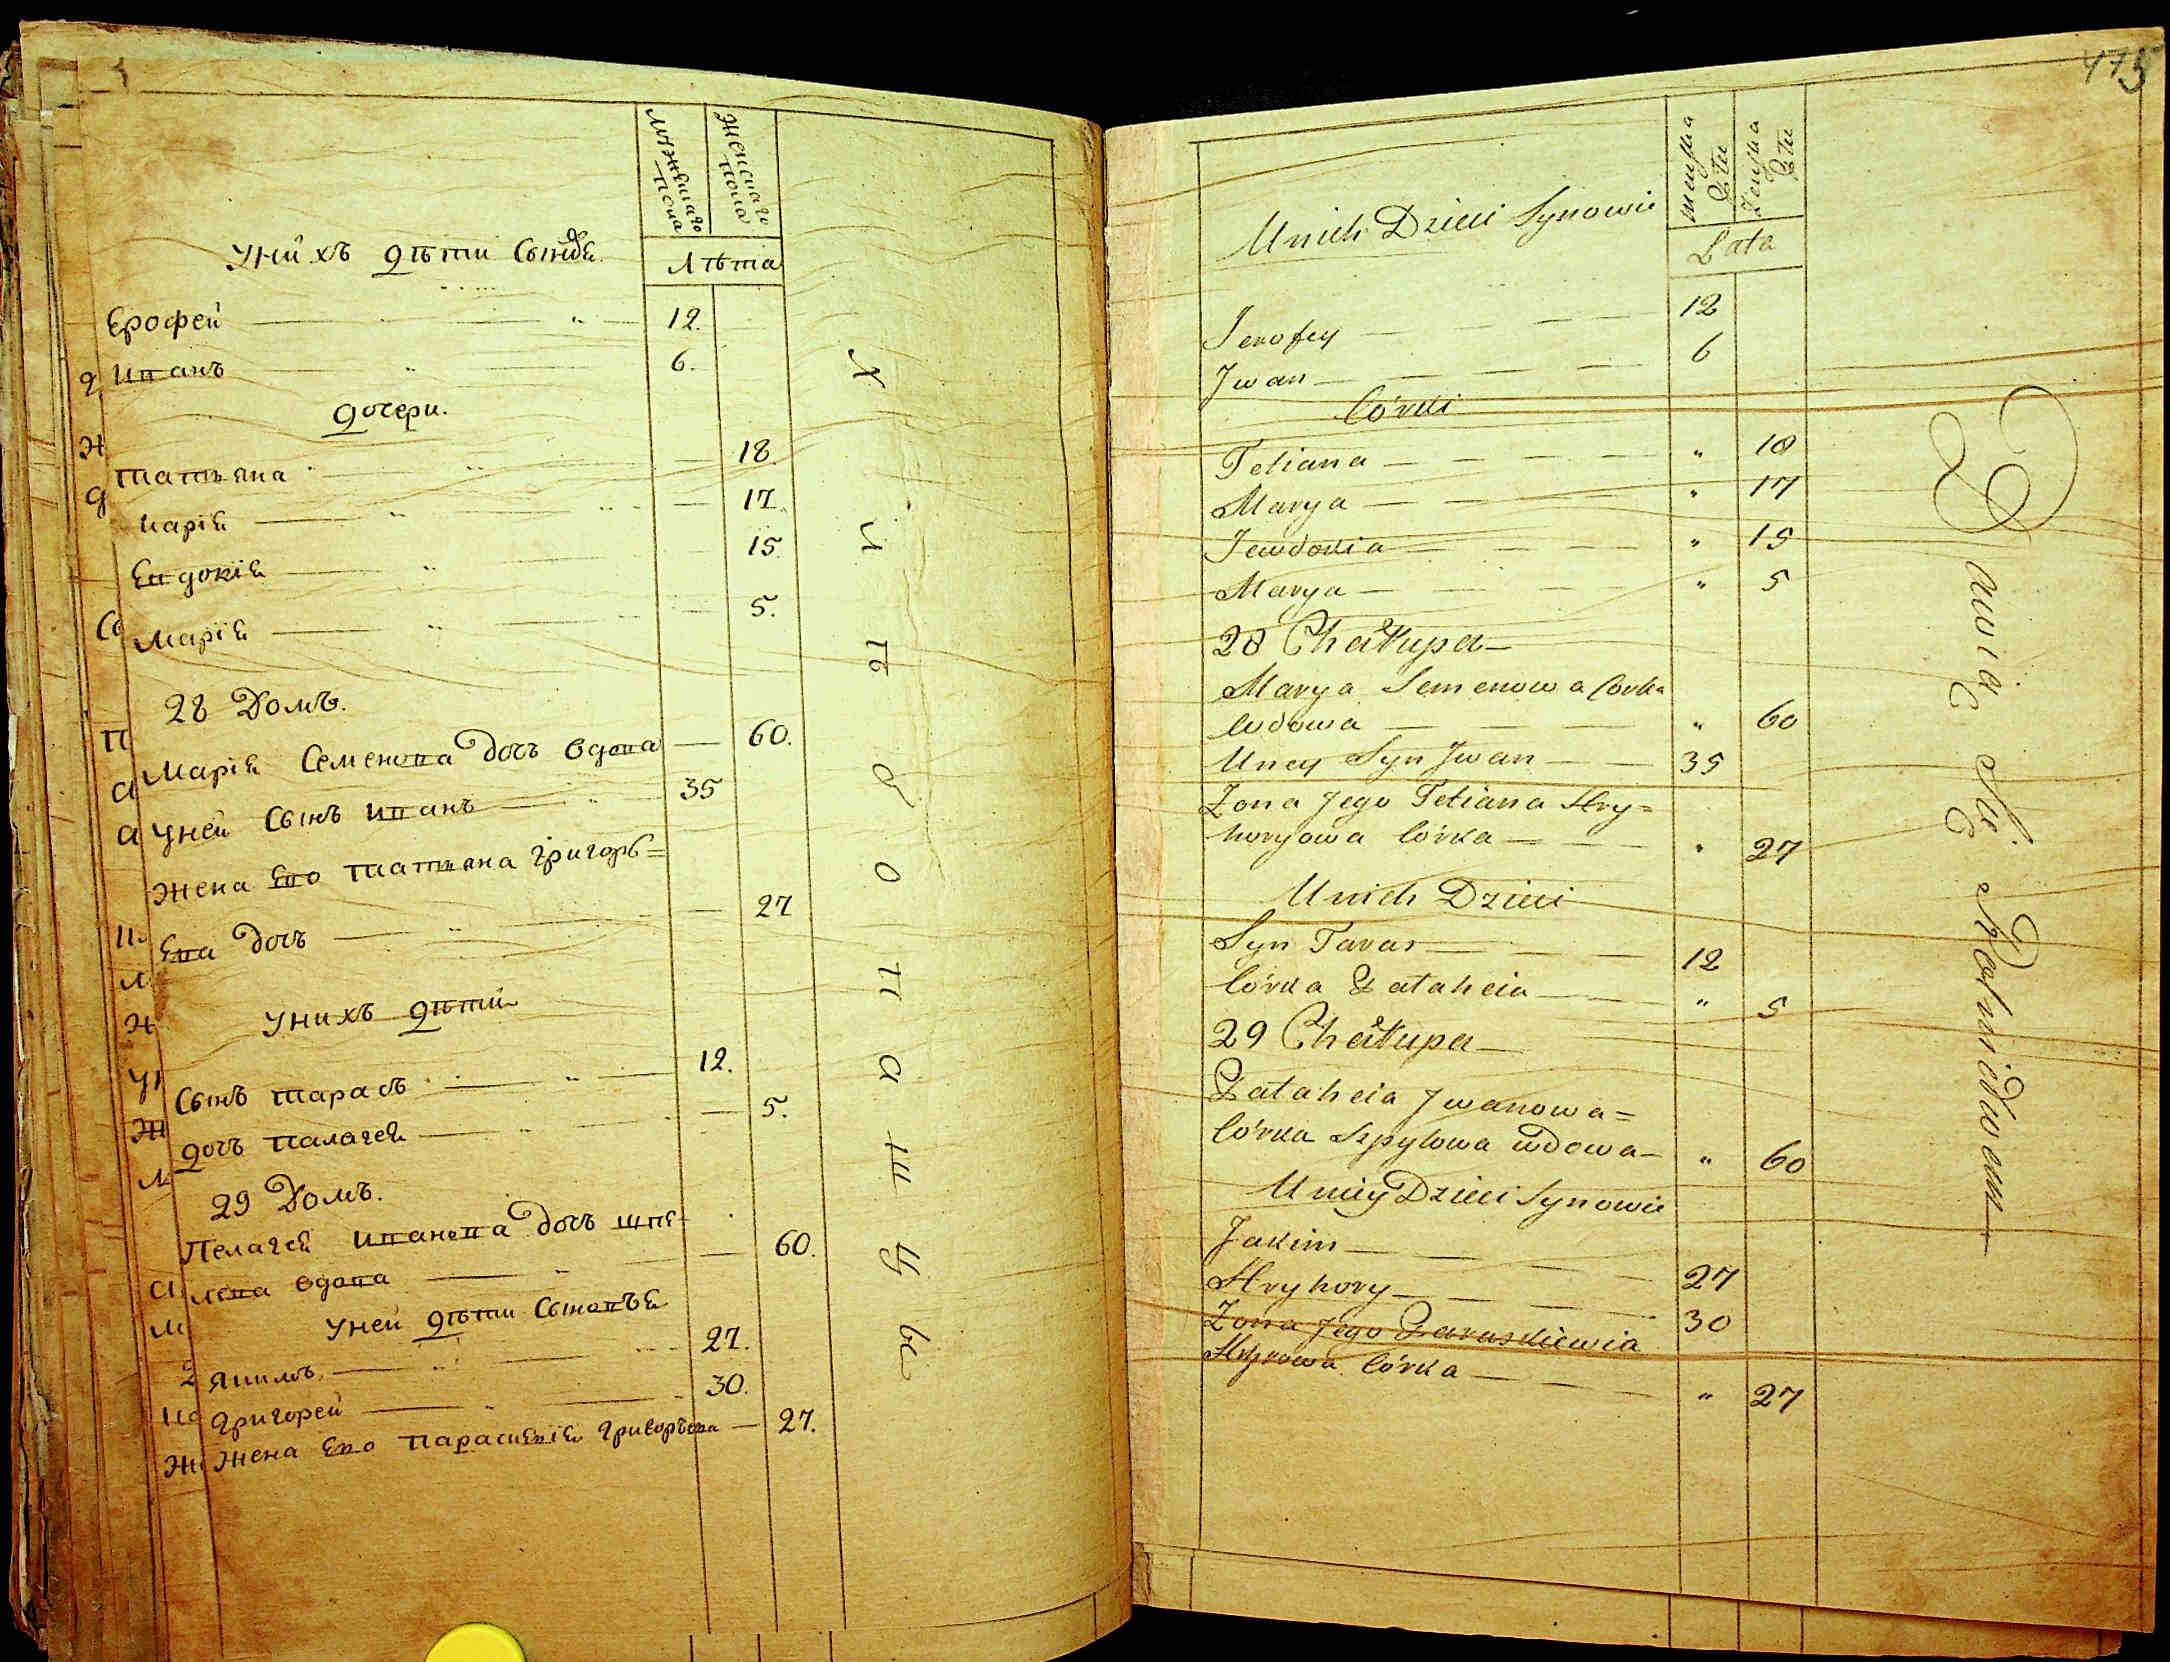 мужескаго пола
женскаго пола
Унихъ дѣти Сыновѣ
Лѣта
Ерофей 12.
Иванъ 6.
дочери.
татьяна 18.
марія 17.
Евдокія 15
Марія 5.
28 Домъ.
Марія Семенова дочь вдова 60.
Уней Сынъ иванъ 35
жена Его татьяна григорь=
Ева дочь 27
Унихъ дѣти
Сынъ тарасъ 12.
дочь палагея 5.
29 Домъ.
Пелагея иванова дочь шпи-
лева вдова 60.
Уней дѣти Сыновья
Якимъ 27.
григорей 30.
жена Его параскевія григорьева 27.
Хлѣбопашцы
475
męska Płti
żeńska Płti
Unich Dzieci Synowie
Lata
Jerofey 12
Jwan 6
Córki
Tetiana " 18
Marya " 17
Jewdokia " 15
Marya " 5
28 Chałupa
Marya Semenowa Corka
wdowa " 60
Uney Syn Jwan 35
Zona Jego Tetiana Hry=
horyowa Córka " 27
Unich Dzieci
Syn Taras 12
Córka Pałaheia " 5
29 Chałupa
Pałaheia Jwanowa=
Córka Szpylowa wdowa " 60
Uniey Dzieci Synowie
Jakim 27
Hryhory 30
Zona Jego Paraskiewia
Córka " 27
Bawią Się Rolnictwem